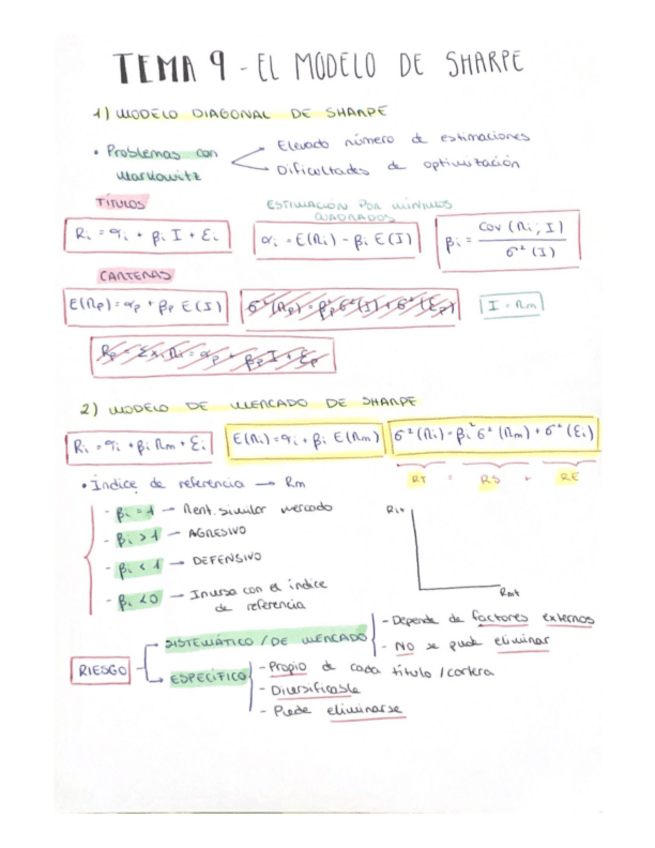 TEMA 9 - EL MODELO DE SHARPE
1) MODELO DIAGONAL DE SHARPE
• Problemas con Markowitz
Elevado número de estimaciones
Dificultades de optimización
TÍTULOS
ESTIMACIÓN POR MÍNIMOS
CUADRADOS
Ri = αi + βi I + εi
αi = E(Ri) - βi E(I)
βi = Cov (Ri; I) / σ² (I)
CARTERAS
E(Rp) = αp + βp E(I)
σ²(Rp) = βp² σ²(I) + σ²(εp)
I = Rm
Rp = Σxi Ri = αp + βp I + εp
2) MODELO DE MERCADO DE SHARPE
Ri = αi + βi Rm + εi
E(Ri) = αi + βi E(Rm)
σ²(Ri) = βi² σ² (Rm) + σ² (εi)
RT = RS + RE
• Índice de referencia → Rm
- βi = 1 → Rent. similar mercado
- βi > 1 → AGRESIVO
- βi < 1 → DEFENSIVO
- βi < 0 → Inversa con el índice
de referencia
Rit
Rmt
RIESGO
SISTEMÁTICO / DE MERCADO
- Depende de factores externos
- NO se puede eliminar
ESPECÍFICO
- Propio de cada título / cartera
- Diversificable
- Puede eliminarse